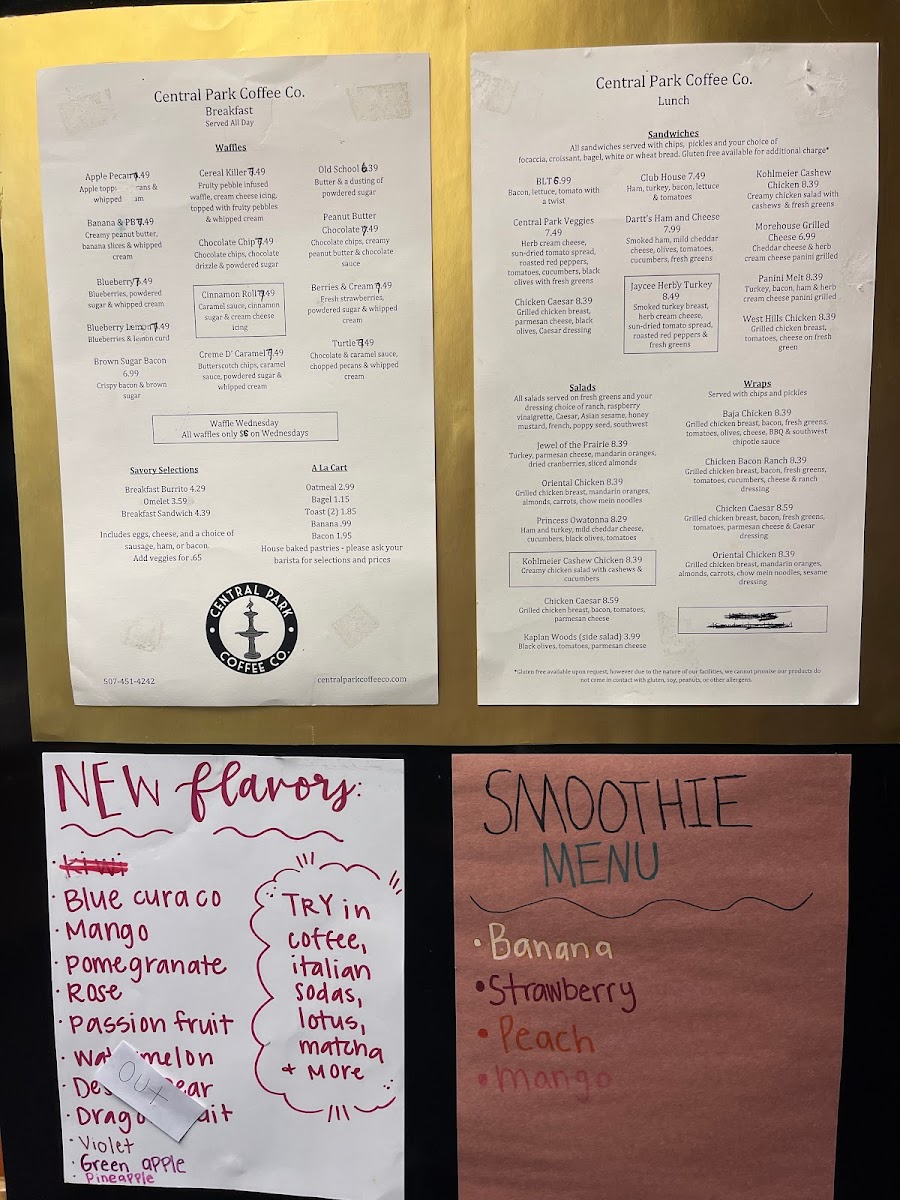 Central Park Coffee Co.
Breakfast
Served All Day
Waffles
Apple Pecan 7.49
Apple
& whipped
Banana & PB 7.49
Creamy peanut butter,
banana slices & whipped
cream
Blueberry 7.49
Blueberries, powdered
sugar & whipped cream
Blueberry Lemon 7.49
Blueberries & lemon curd
Brown Sugar Bacon
6.99
Crispy bacon & brown
sugar
Cereal Killer 7.49
Fruity pebble infused
waffle, cream cheese icing,
topped with fruity pebbles
& whipped cream
Chocolate Chip 7.49
Chocolate chips, chocolate
drizzle & powdered sugar
Cinnamon Roll 7.49
Caramel sauce, cinnamon
sugar & cream cheese
icing
Creme D' Caramel 7.49
Butterscotch chips, caramel
sauce, powdered sugar &
whipped cream
Old School 6.39
Butter & a dusting of
powdered sugar
Peanut Butter
Chocolate 7.49
Chocolate chips, creamy
peanut butter & chocolate
sauce
Berries & Cream 7.49
Fresh strawberries,
powdered sugar & whipped
cream
Turtle 7.49
Chocolate & caramel sauce,
chopped pecans & whipped
cream
Waffle Wednesday
All waffles only $6 on Wednesdays
Savory Selections
Breakfast Burrito 4.29
Omelet 3.59
Breakfast Sandwich 4.39
Includes eggs, cheese, and a choice of
sausage, ham, or bacon.
Add veggies for .65
A La Cart
Oatmeal 2.99
Bagel 1.15
Toast (2) 1.85
Banana .99
Bacon 1.95
House baked pastries - please ask your
barista for selections and prices
CENTRAL PARK
COFFEE CO.
507-451-4242
centralparkcoffeeco.com
Central Park Coffee Co.
Lunch
Sandwiches
All sandwiches served with chips, pickles and your choice of
focaccia, croissant, bagel, white or wheat bread. Gluten free available for additional charge*
BLT 6.99
Bacon, lettuce, tomato with
a twist
Central Park Veggies
7.49
Herb cream cheese,
sun-dried tomato spread,
roasted red peppers,
tomatoes, cucumbers, black
olives with fresh greens
Chicken Caesar 8.39
Grilled chicken breast,
parmesan cheese, black
olives, Caesar dressing
Club House 7.49
Ham, turkey, bacon, lettuce
& tomatoes
Dartt's Ham and Cheese
7.99
Smoked ham, mild cheddar
cheese, olives, tomatoes,
cucumbers, fresh greens
Jaycee Herby Turkey
8.49
Smoked turkey breast,
herb cream cheese,
sun-dried tomato spread,
roasted red peppers &
fresh greens
Kohlmeier Cashew
Chicken 8.39
Creamy chicken salad with
cashews & fresh greens
Morehouse Grilled
Cheese 6.99
Cheddar cheese & herb
cream cheese panini grilled
Panini Melt 8.39
Turkey, bacon, ham & herb
cream cheese panini grilled
West Hills Chicken 8.39
Grilled chicken breast,
tomatoes, cheese on fresh
green
Salads
All salads served on fresh greens and your
dressing choice of ranch, raspberry
vinaigrette, Caesar, Asian sesame, honey
mustard, french, poppy seed, southwest
Jewel of the Prairie 8.39
Turkey, parmesan cheese, mandarin oranges,
dried cranberries, sliced almonds
Oriental Chicken 8.39
Grilled chicken breast, mandarin oranges,
almonds, carrots, chow mein noodles
Princess Owatonna 8.29
Ham and turkey, mild cheddar cheese,
cucumbers, black olives, tomatoes
Kohlmeier Cashew Chicken 8.39
Creamy chicken salad with cashews &
cucumbers
Chicken Caesar 8.59
Grilled chicken breast, bacon, tomatoes,
parmesan cheese
Kaplan Woods (side salad) 3.99
Black olives, tomatoes, parmesan cheese
Wraps
Served with chips and pickles
Baja Chicken 8.39
Grilled chicken breast, bacon, fresh greens,
tomatoes, olives, cheese, BBQ & southwest
chipotle sauce
Chicken Bacon Ranch 8.39
Grilled chicken breast, bacon, fresh greens,
tomatoes, cucumbers, cheese & ranch
dressing
Chicken Caesar 8.59
Grilled chicken breast, bacon, fresh greens,
tomatoes, parmesan cheese & Caesar
dressing
Oriental Chicken 8.39
Grilled chicken breast, mandarin oranges,
almonds, carrots, chow mein noodles, sesame
dressing
*Gluten free available upon request, however due to the nature of our facilities, we cannot promise our products do
not come in contact with gluten, soy, peanuts, or other allergens.
NEW flavors:
· Kiwi
· Blue curaco
· Mango
· Pomegranate
· Rose
· Passion fruit
· Watermelon
· Des ear
· Dragon fruit
· Violet
· Green apple
· Pineapple
OUT
TRY in
coffee,
italian
sodas,
lotus,
matcha
+ more
SMOOTHIE
MENU
· Banana
· Strawberry
· Peach
· Mango